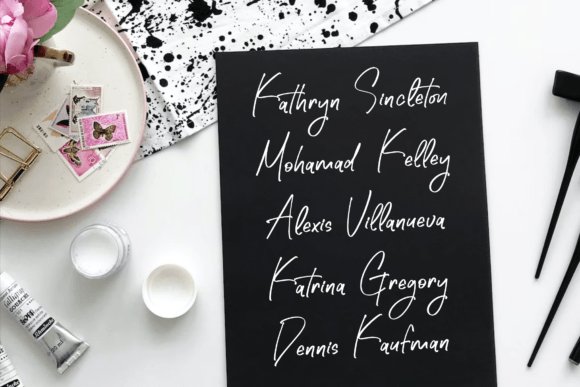 Kathryn Sincleton
Mohamad Kelley
Alexis Villanueva
Katrina Gregory
Dennis Kaufman